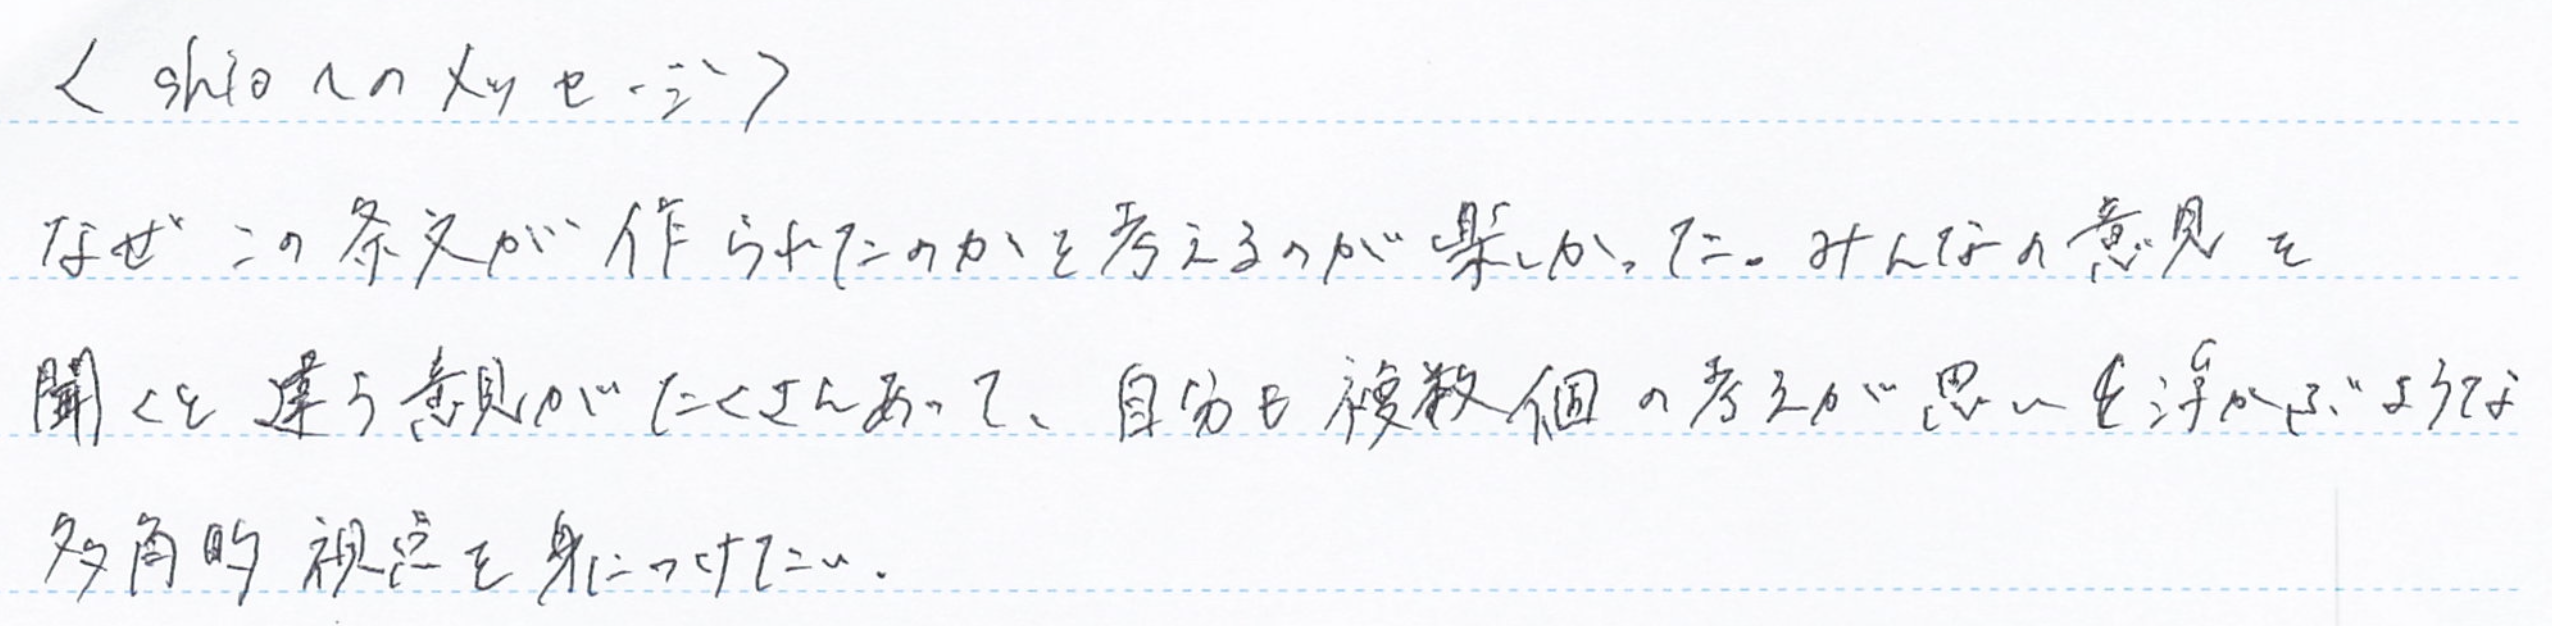 〈shioへのメッセージ〉
なぜこの条文が作られたのかと考えるのが楽しかった。みんなの意見を
聞くと違う意見がたくさんあって、自分も複数個の考えが思いも浮かぶような
多角的視点を身につけたい。